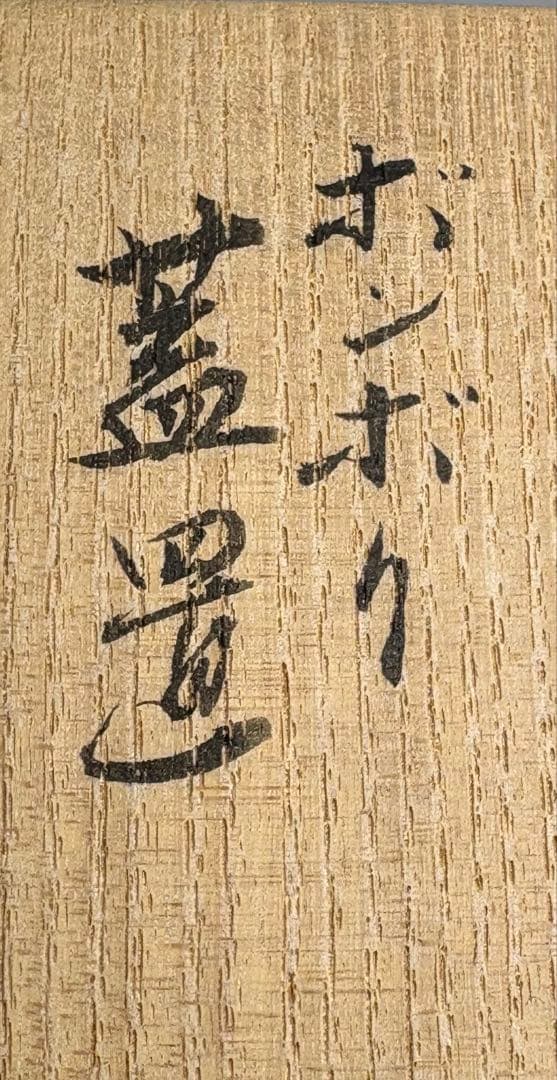 ボンボリ
蓋置